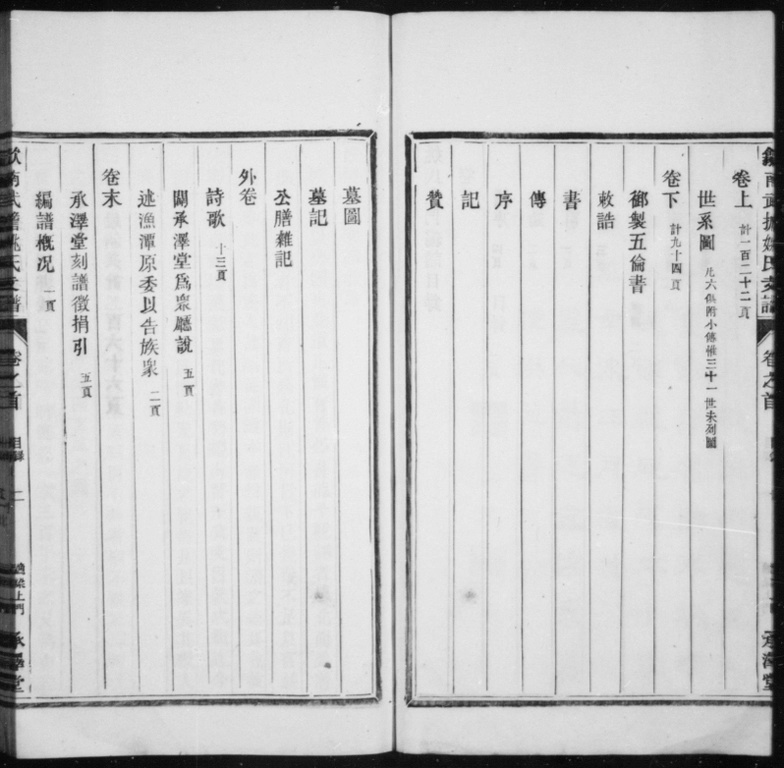 卷上 計一百二十二頁
世系圖 凡六俱附小傳惟三十一世未列圖
卷下 計九十四頁
御製五倫書
敕誥
書
傳
序
記
贊
墓圖
墓記
公牘雜記
外卷
詩歌 十三頁
闢承澤堂爲衆廳說 五頁
述漁潭原委以告族衆 二頁
卷末
承澤堂刻譜徵捐引 五頁
編譜概况 一頁
卷之首 目錄 二
承澤堂
卷之首
承澤堂